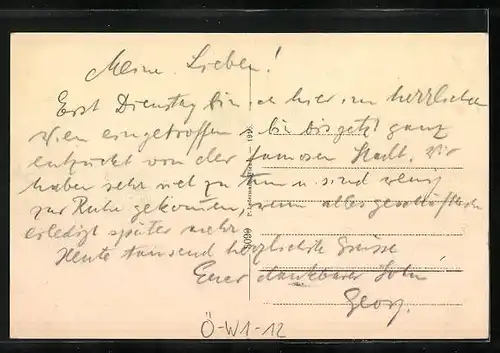 Meine Lieben!
Erst Dienstag bin ich hier im herrlichen
Wien eingetroffen u. bin bis jetzt ganz
entzückt von der famosen Stadt. Wir
haben sehr viel zu tun u. sind wenig
zur Ruhe gekommen, wenn alles geschäftliche
erledigt später mehr.
Heute tausend herzlichste Grüsse
Euer dankbarer Sohn
Georg.
Ö-W1-12